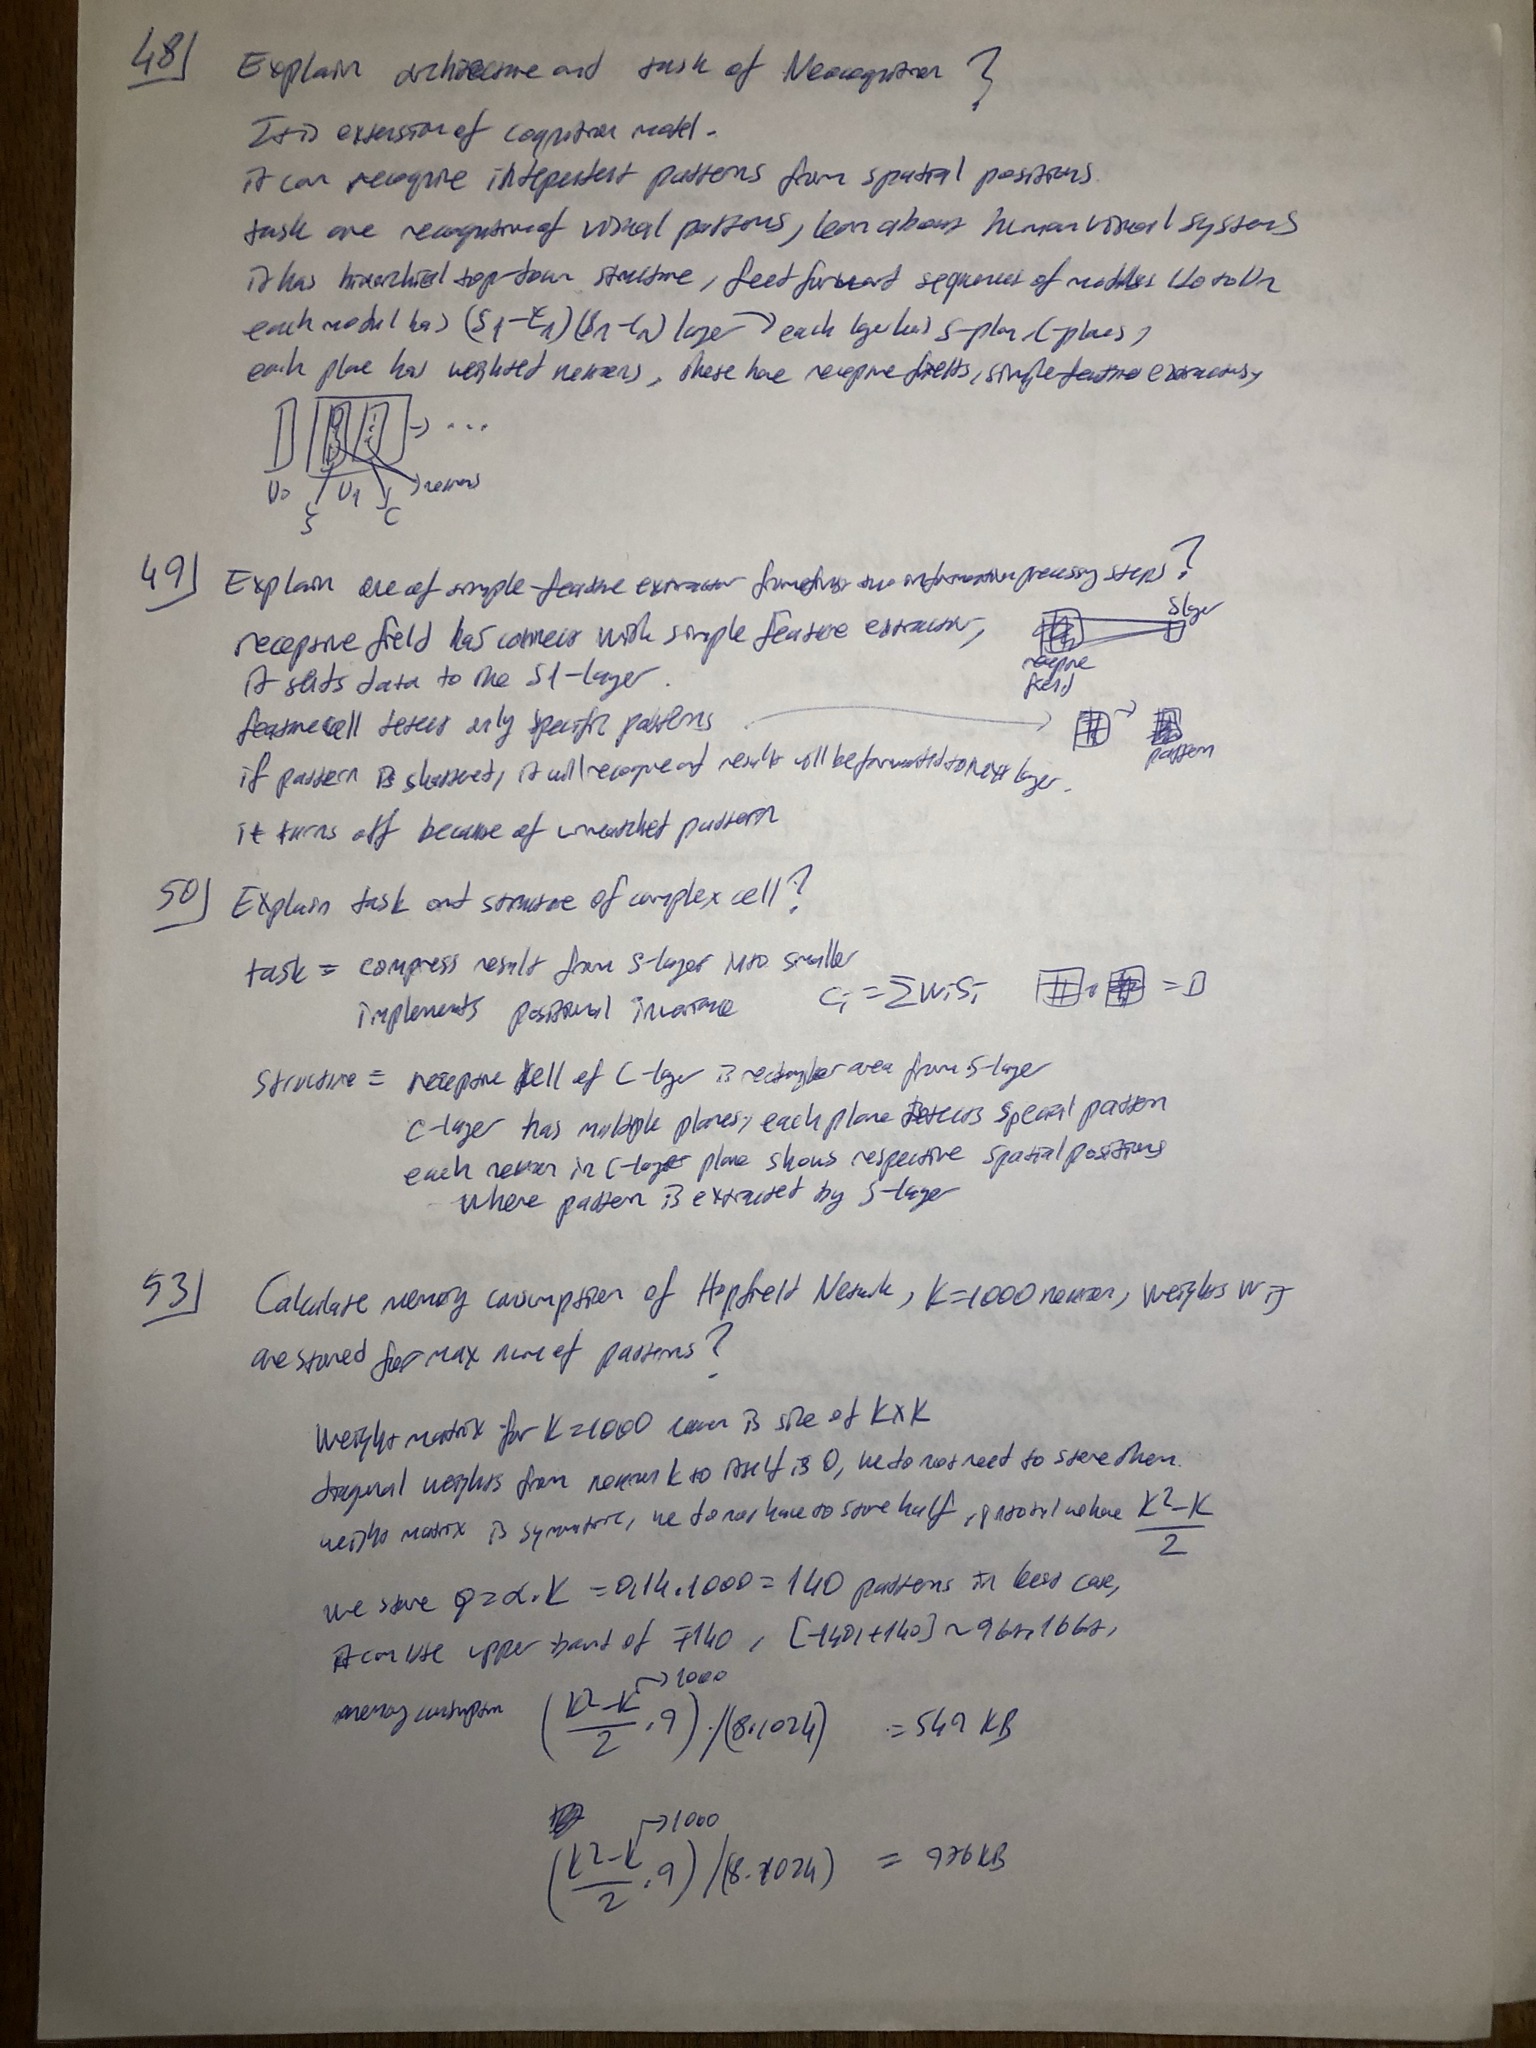 48) Explain architecture and task of Neocognitron ?
It is extension of cognitron model.
it can recognize independent patterns from spatial positions.
task are recognition of visual patterns, learn about human visual systems
it has hierarchical top-down structure, feed forward sequences of modules U0 to Un
each modul has (S1-C1)(Sn-Cn) layer → each layer has S-plan, C-planes,
each plane has weighted neurons, these have receptive fields, simple feature extractors,
→ ...
U0 U1 → neurons
S C
49) Explain one of simple-feature extractor from first two information processing steps ?
receptive field has connect with simple feature extractor,
S layer
it sends data to the S1-layer.
receptive field
feature cell detect only specific patterns
pattern
if pattern is shattered, it will recognize and result will be forwarded to next layer.
it turns off because of unmatched pattern
50) Explain task and structure of complex cell ?
task = compress result from S-layer into smaller
implements positional invariance Ci = ΣWiSi
structure = receptive cell of C-layer is rectangular area from S-layer
C-layer has multiple planes, each plane detects special pattern
each neuron in C-layer plane shows respective spatial positions
where pattern is extracted by S-layer
53) Calculate memory consumption of Hopfield Network, K=1000 neuron, weights wij
are stored for max num of patterns ?
Weight matrix for K=1000 neuron is size of KxK
diagonal weights from neuron k to itself is 0, we do not need to store them.
weight matrix is symmetric, we do not have to store half, in total we have K²-K / 2
we store p=α.K = 0,14.1000 = 140 patterns in best case,
it can use upper band of ∓140, [-140,+140] ~ 9bit, 16bit,
memory consumption (K²-K / 2 . 9) / (8.1024) = 549 KB
→ 1000
→ 1000
(K²-K / 2 . 9) / (8.1024) = 976 KB